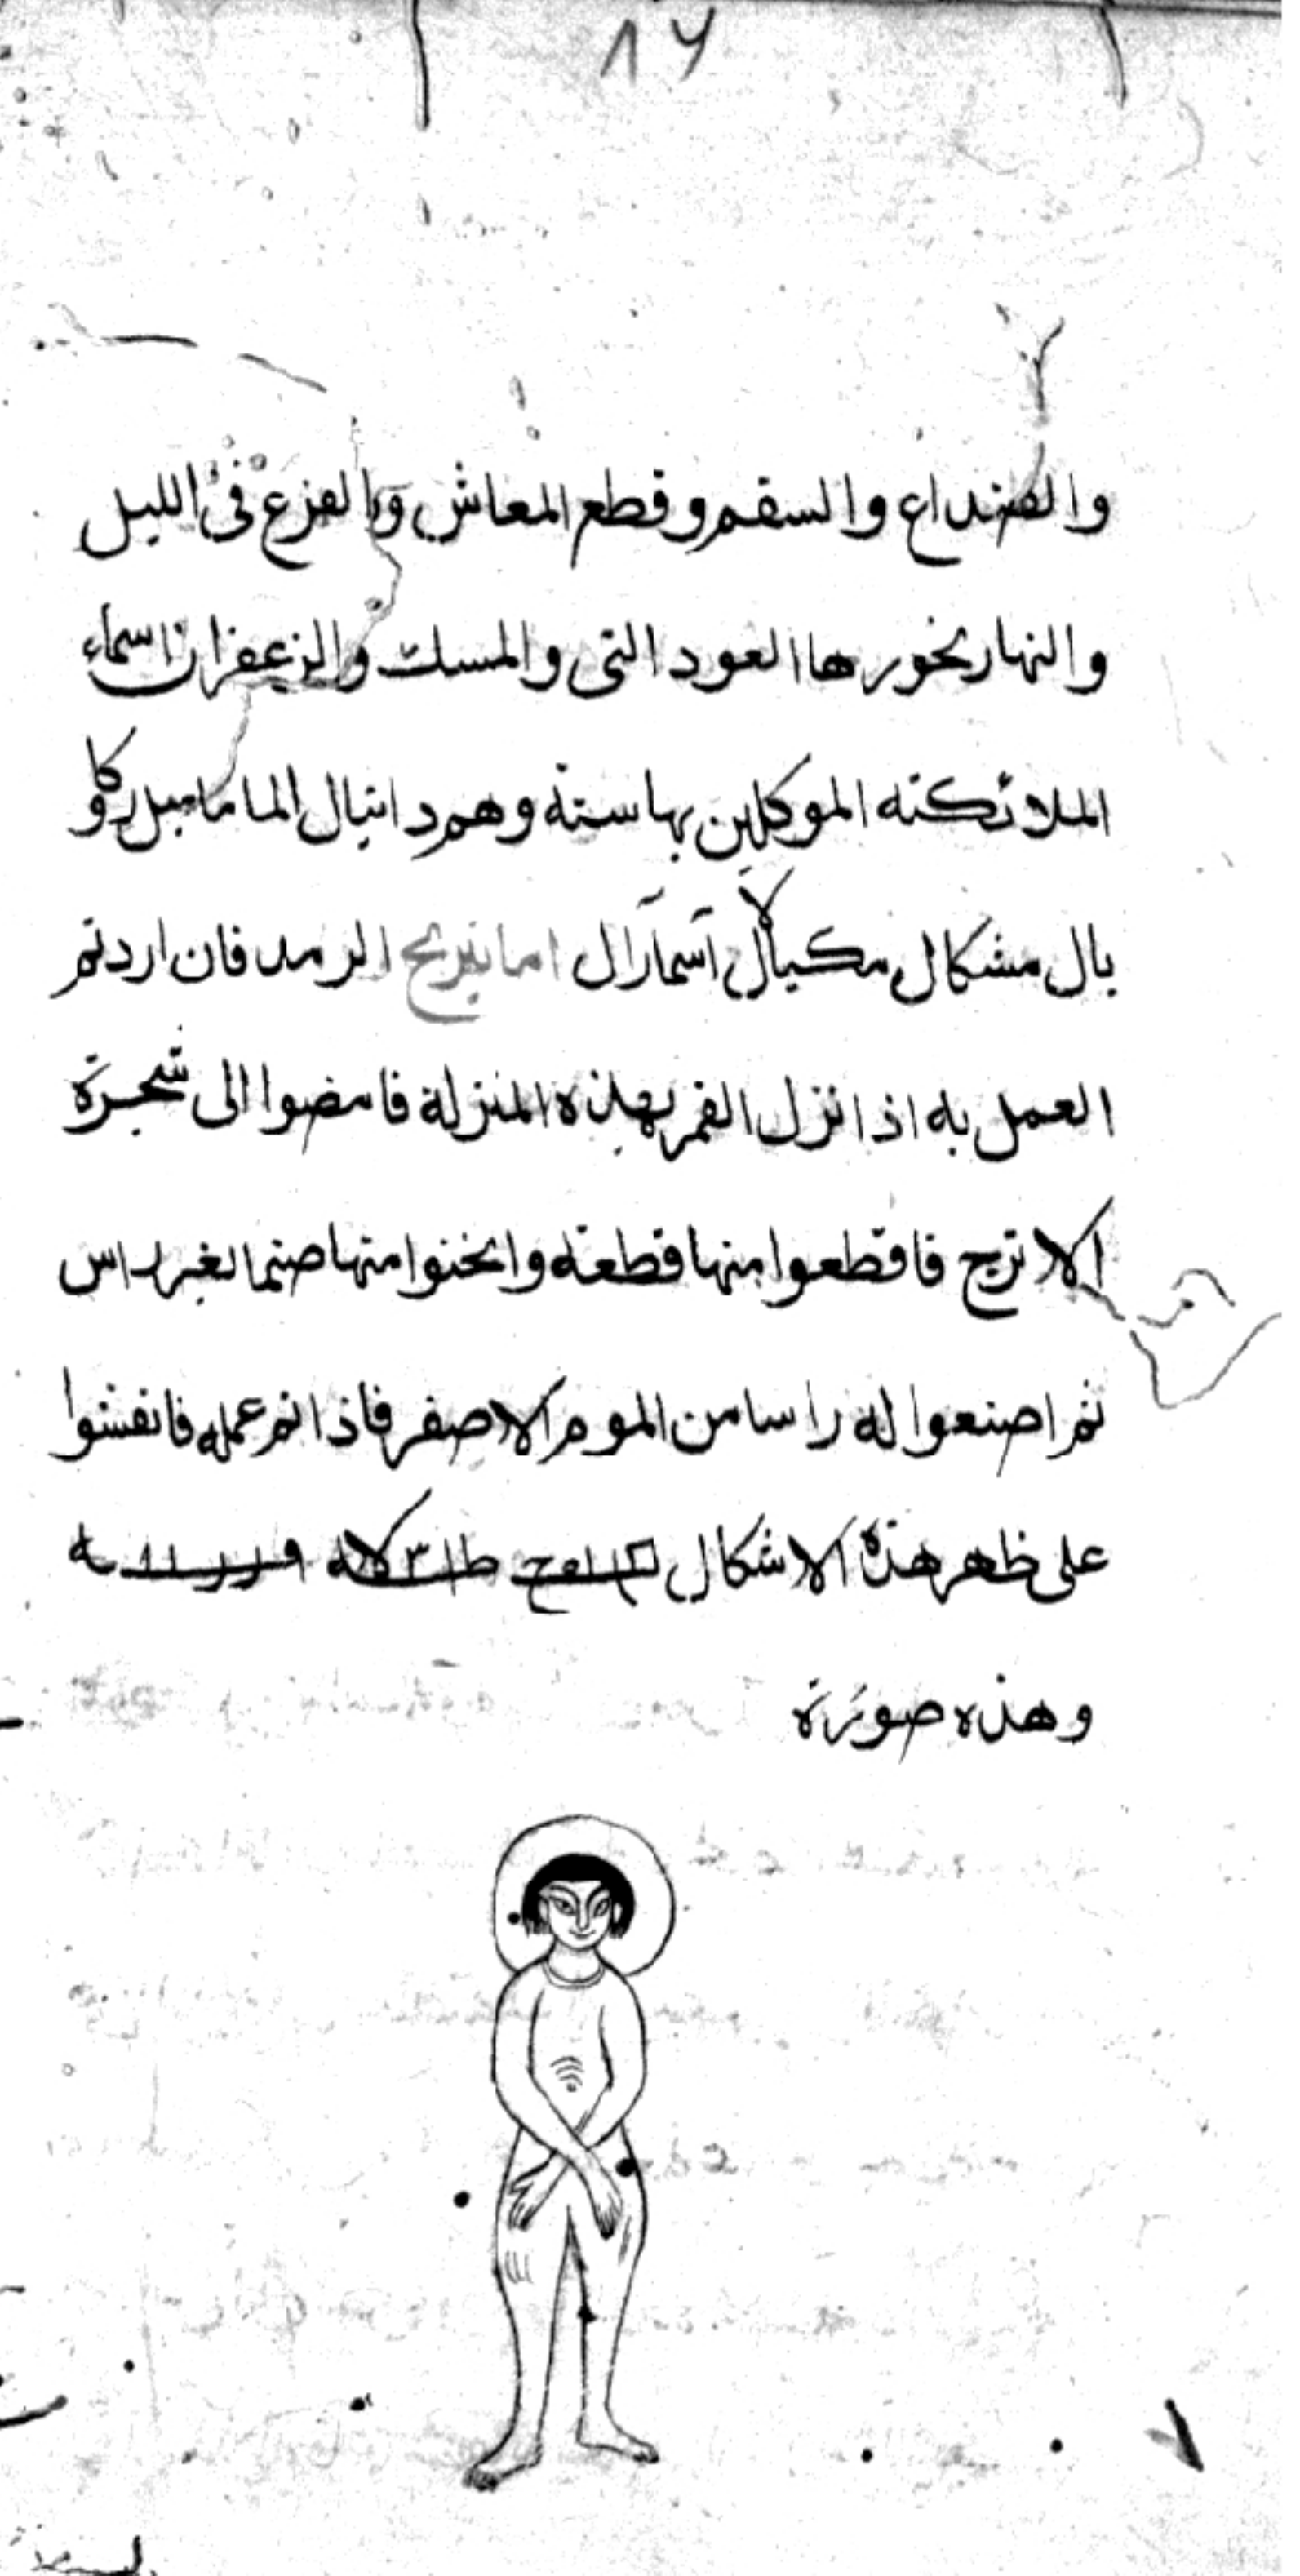 ٨٧
والصداع والسقم وقطع المعاش والفزع فى الليل
والنهار بخورها العود التى والمسك والزعفران اسماء
الملائكته الموكلين بها ستة وهم دانيال
بال مشكال مكيال اسمارال اما نيريح الرمد فان اردتم
العمل به اذا نزل القمر بهذه المنزلة فامضوا الى شجرة
الاترج فاقطعوا منها قطعة وانحتوا منها صنما بغير راس
ثم اصنعوا له راسا من الموم الاصفر فاذا تم عمله فانقشوا
على ظهر هذه الاشكال
وهذه صورة